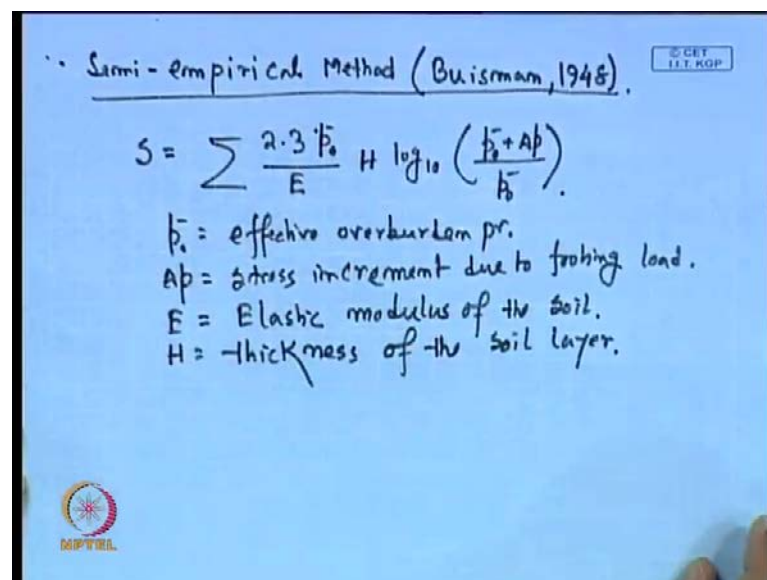 Semi-empirical Method (Buismam, 1948).
© CET
I.I.T. KGP
S = ∑ 2.3 p̄₀ / E H log₁₀ ( p̄₀ + Δp / p̄₀ ).
p̄₀ = effective overburden pr.
Δp = stress increment due to footing load.
E = Elastic modulus of the soil.
H = thickness of the soil layer.
NPTEL